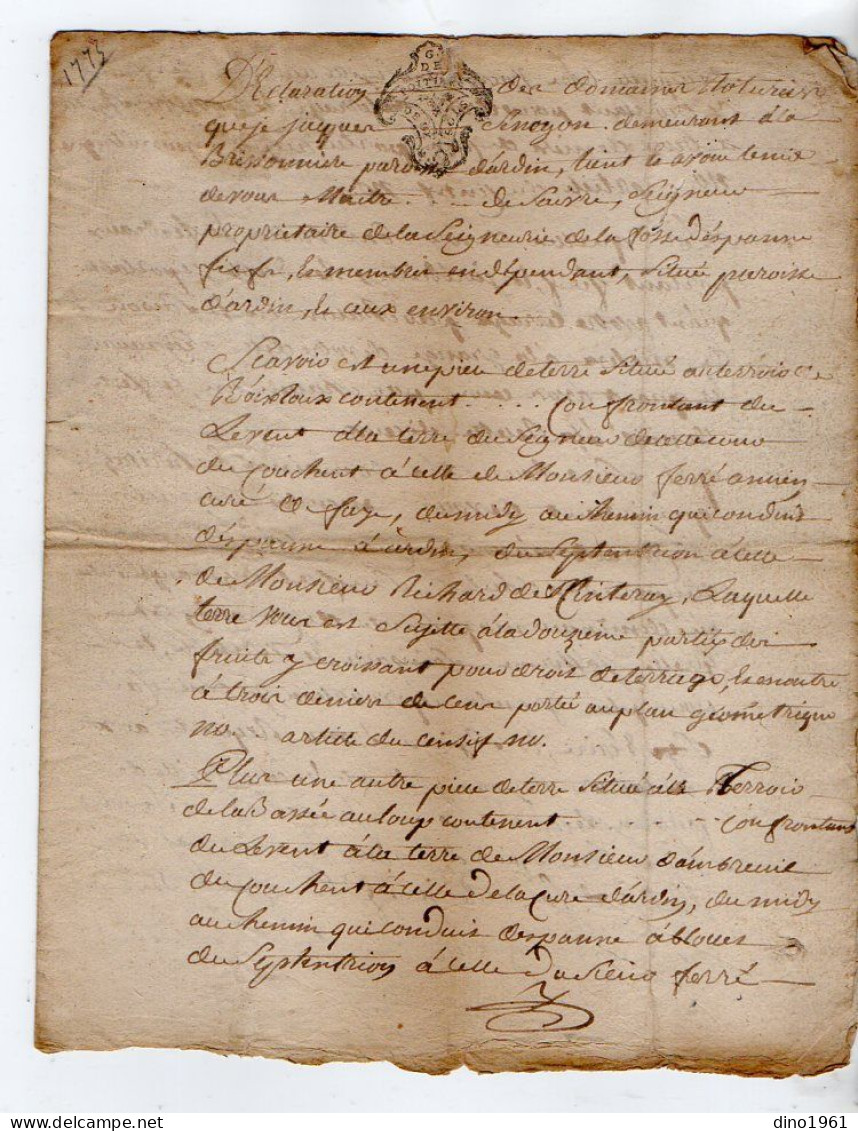 1773
G DE
Déclaration des domaines Roturier
que je jacques demeurant à la
Brissonniere paroisse d'ardin, tient et avoue tenir
de vous Maitre . . . . de Saivre, Seigneur
proprietaire de la Seigneurie de la fosse d'espanne
fiefs, et membres en dépendant, Situé paroisse
d'ardin, et aux environ.
Scavoir est une piece de terre Situé au terroir
contenent . . . . Confrontant du
Levent à la terre du Seigneur de cette cour
du Couchent à celle de Monsieur ferré ancien
curé de faye, du midy au chemin qui conduit
d'espanne à ardin, du Septentrion à celle
de Monsieur Richard de Laquelle
terre vous est Sujette à la douzeme parties des
fruits y croissant pour droit de terrage, et encontre
à trois deniers de cens porté au plan géometrique
no. article du censif no.
Plus une autre piece de terre Situé au Terroir
de la Bassée au loup contenent Confrontant
du Levent à la terre de Monsieur dambreuil
du Couchent à celle de la cure d'ardin, du midy
au chemin qui conduit despanne à
du Septentrion à celle du Sieur ferré
dino1961